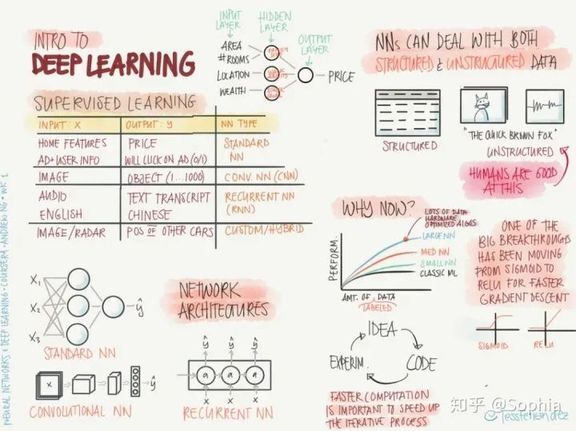 INTRO TO
DEEP LEARNING
INPUT LAYER
HIDDEN LAYER
OUTPUT LAYER
AREA
# ROOMS
LOCATION
WEALTH
PRICE
SUPERVISED LEARNING
INPUT: X OUTPUT: y NN TYPE
HOME FEATURES PRICE STANDARD NN
AD+USER INFO WILL CLICK ON AD (0/1)
IMAGE OBJECT (1...1000) CONV. NN (CNN)
AUDIO TEXT TRANSCRIPT RECURRENT NN (RNN)
ENGLISH CHINESE
IMAGE/RADAR POS OF OTHER CARS CUSTOM/HYBRID
NNs CAN DEAL WITH BOTH
STRUCTURED & UNSTRUCTURED DATA
STRUCTURED
"THE QUICK BROWN FOX"
UNSTRUCTURED
HUMANS ARE GOOD
AT THIS
WHY NOW?
LOTS OF DATA
HARDWARE
OPTIMIZED ALGOS
LARGE NN
MED NN
SMALL NN
CLASSIC ML
PERFORM.
AMT. OF DATA
LABELED
ONE OF THE
BIG BREAKTHROUGHS
HAS BEEN MOVING
FROM SIGMOID TO
RELU FOR FASTER
GRADIENT DESCENT
SIGMOID
RELU
IDEA
CODE
EXPERIM.
FASTER COMPUTATION
IS IMPORTANT TO SPEED UP
THE ITERATIVE PROCESS
X₁
X₂
X₃
ŷ
STANDARD NN
NETWORK
ARCHITECTURES
X
ŷ
CONVOLUTIONAL NN
ŷ ŷ ŷ
a a a
RECURRENT NN
NEURAL NETWORKS & DEEP LEARNING · COURSERA · ANDREW NG · WK 1
知乎 @Sophia